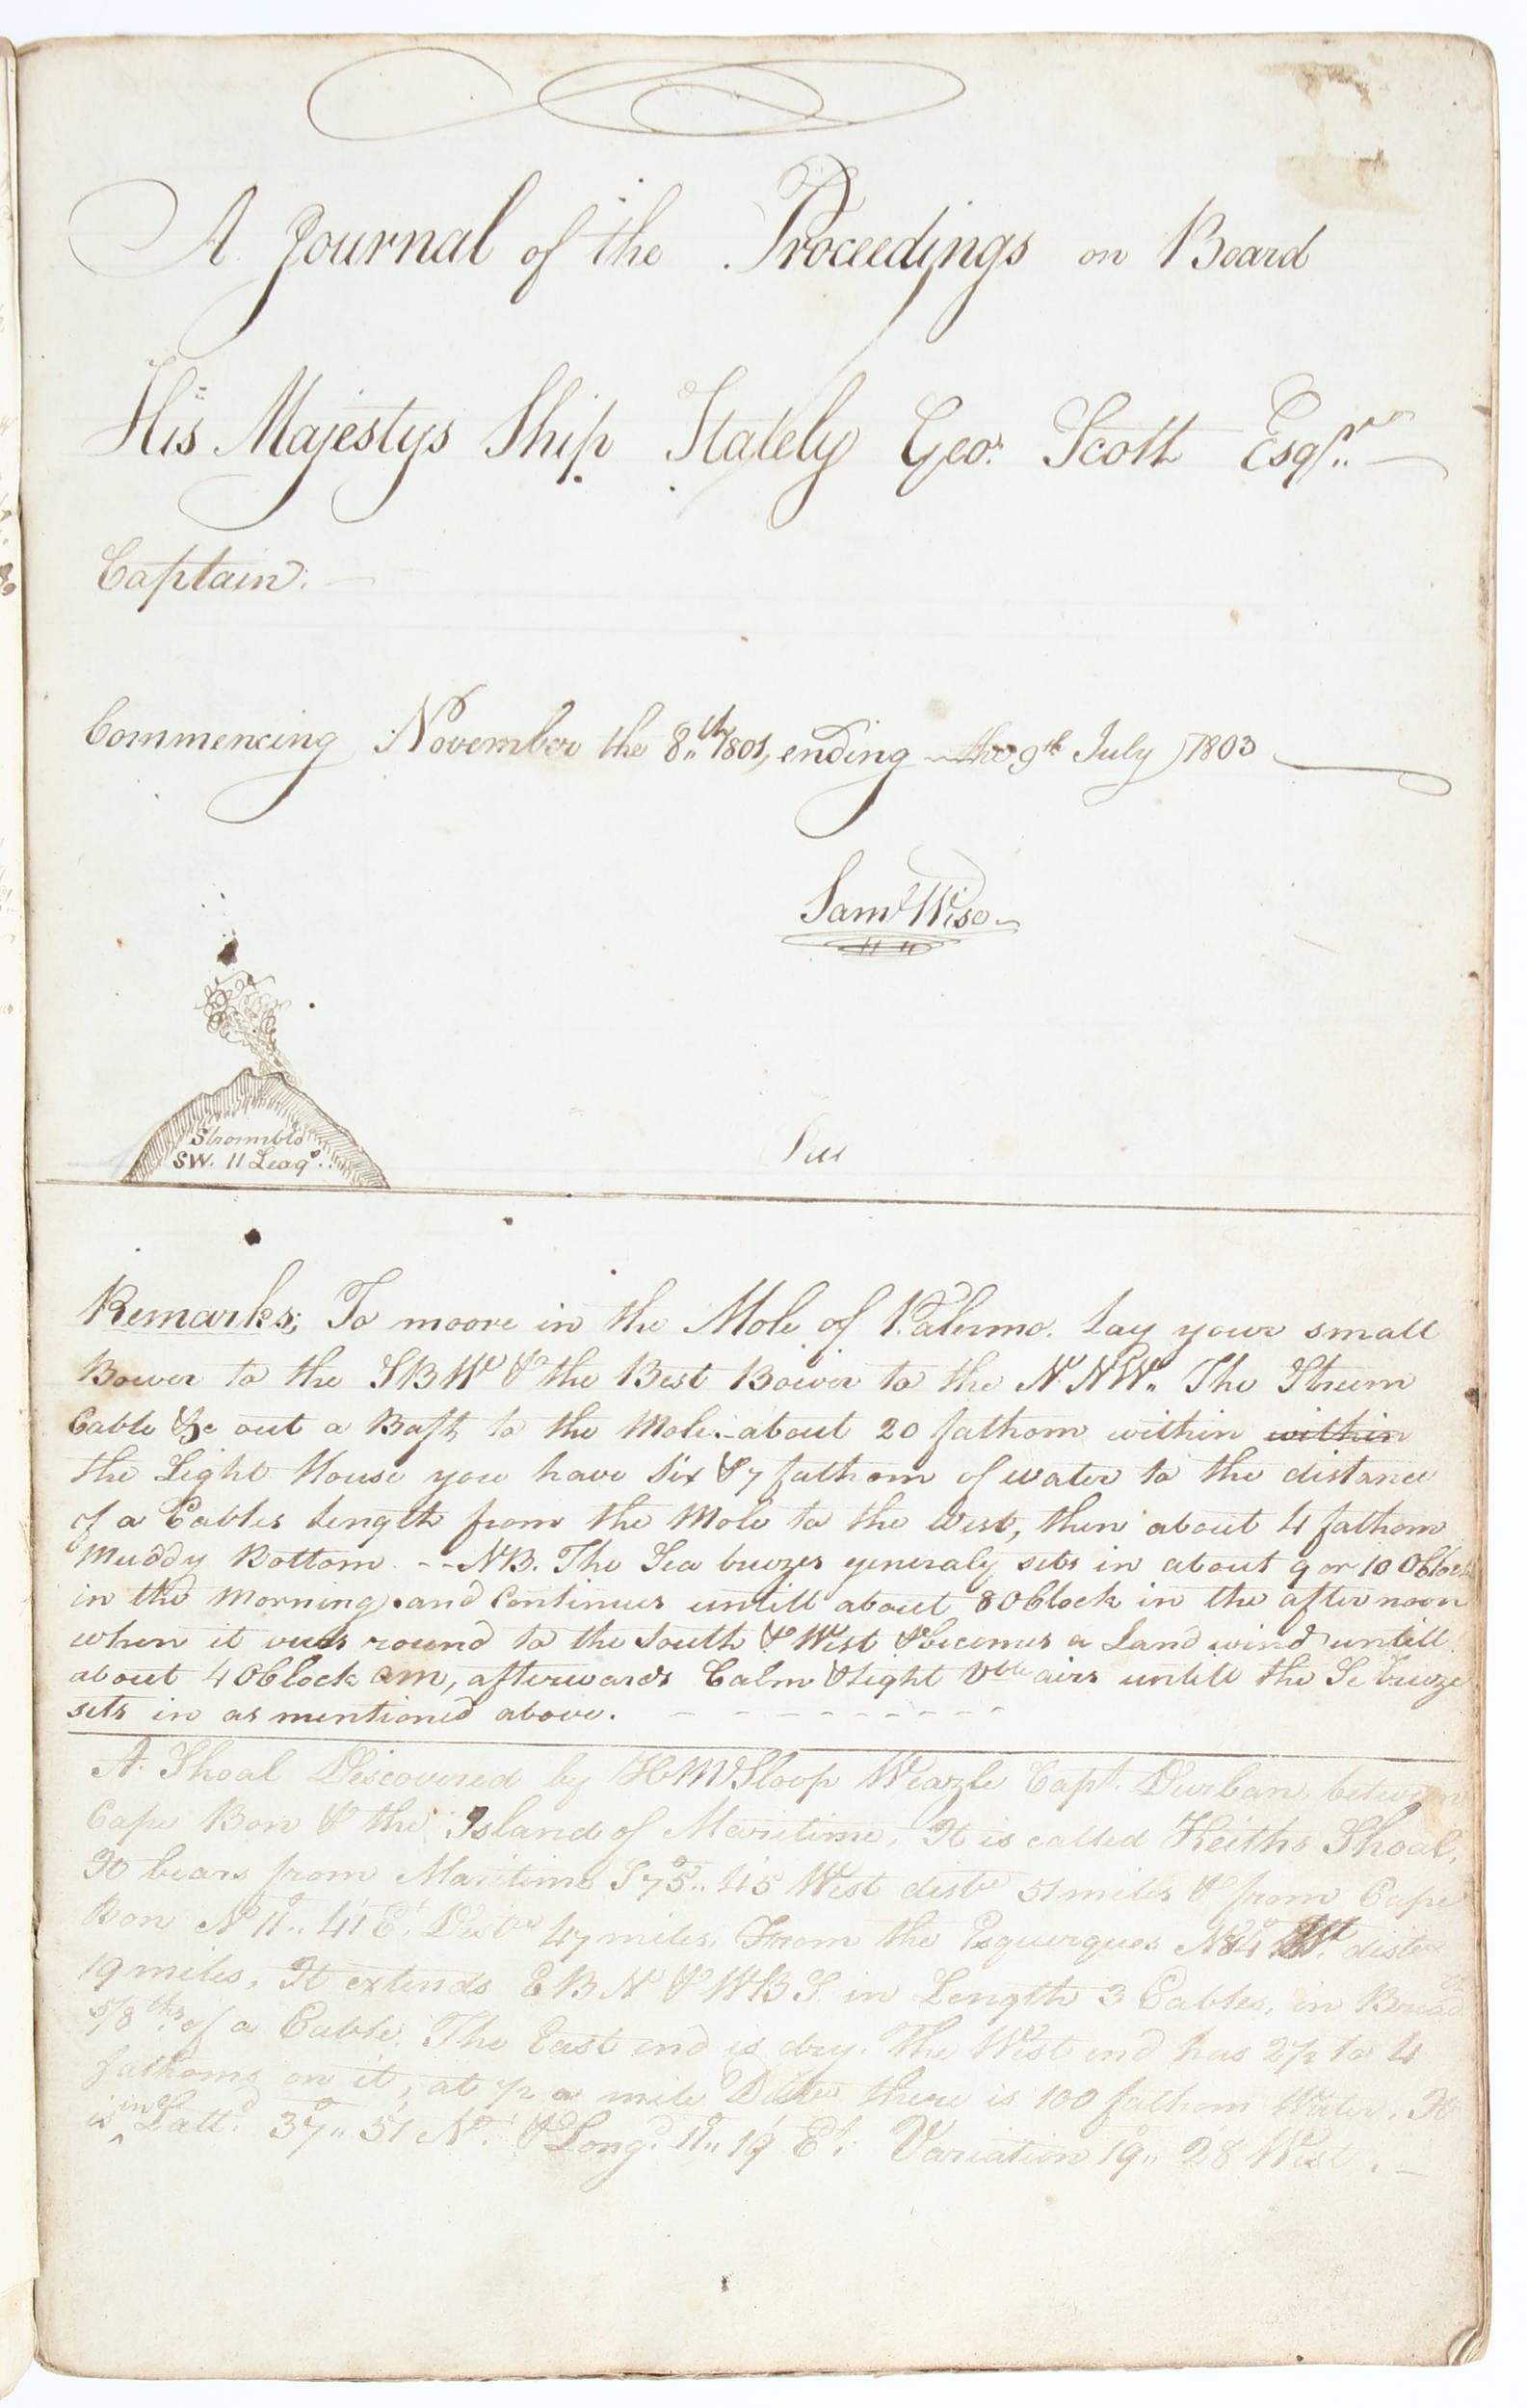 A Journal of the Proceedings on Board
His Majestys Ship Stately Geo: Scott Esqr.
Captain.
Commencing November the 8th 1801, ending the 9th July 1803
Saml Wise
Stromblo
SW. 11 Leags.
Remarks; To moore in the Mole of Palermo. Lay your small
Bower to the SBW & the Best Bower to the NNW. The Stream
Cable &c out a Baft to the Mole. about 20 fathom within within
the Light House you have Six & 7 fathom of water to the distance
of a Cables Length from the Mole to the West, then about 4 fathom
Muddy Bottom. -- NB. The Sea breezes generaly sets in about 9 or 10 OClock
in the Morning and Continues untill about 8 OClock in the afternoon
when it veers round to the South & West & becomes a Land wind untill
about 4 OClock am, afterwards Calm & light Vble airs untill the Se breeze
sets in as mentioned above. - - - - - - - - -
A Shoal Discovered by HM Sloop Weazle Capt. Durban, between
Cape Bon & the Island of Maritime, It is called Keiths Shoal,
It bears from Maritime S 75°.. 45 West distce 51 miles & from Cape
Bon N 11°.. 41' Et. Distce 47 miles. From the Esquerques N 84 Wt. distce
19 miles, It extends EBN & WBS in Length 3 Cables, in Breadth
5/8ths of a Cable. The East end is dry. The West end has 2 1/2 to 4
fathoms on it, at 1/2 a mile Distce there is 100 fathom Water. It
is in Lattd. 37°.. 51' N. & Longd. 11°.. 19' Et. Variation 19°.. 28 West. -